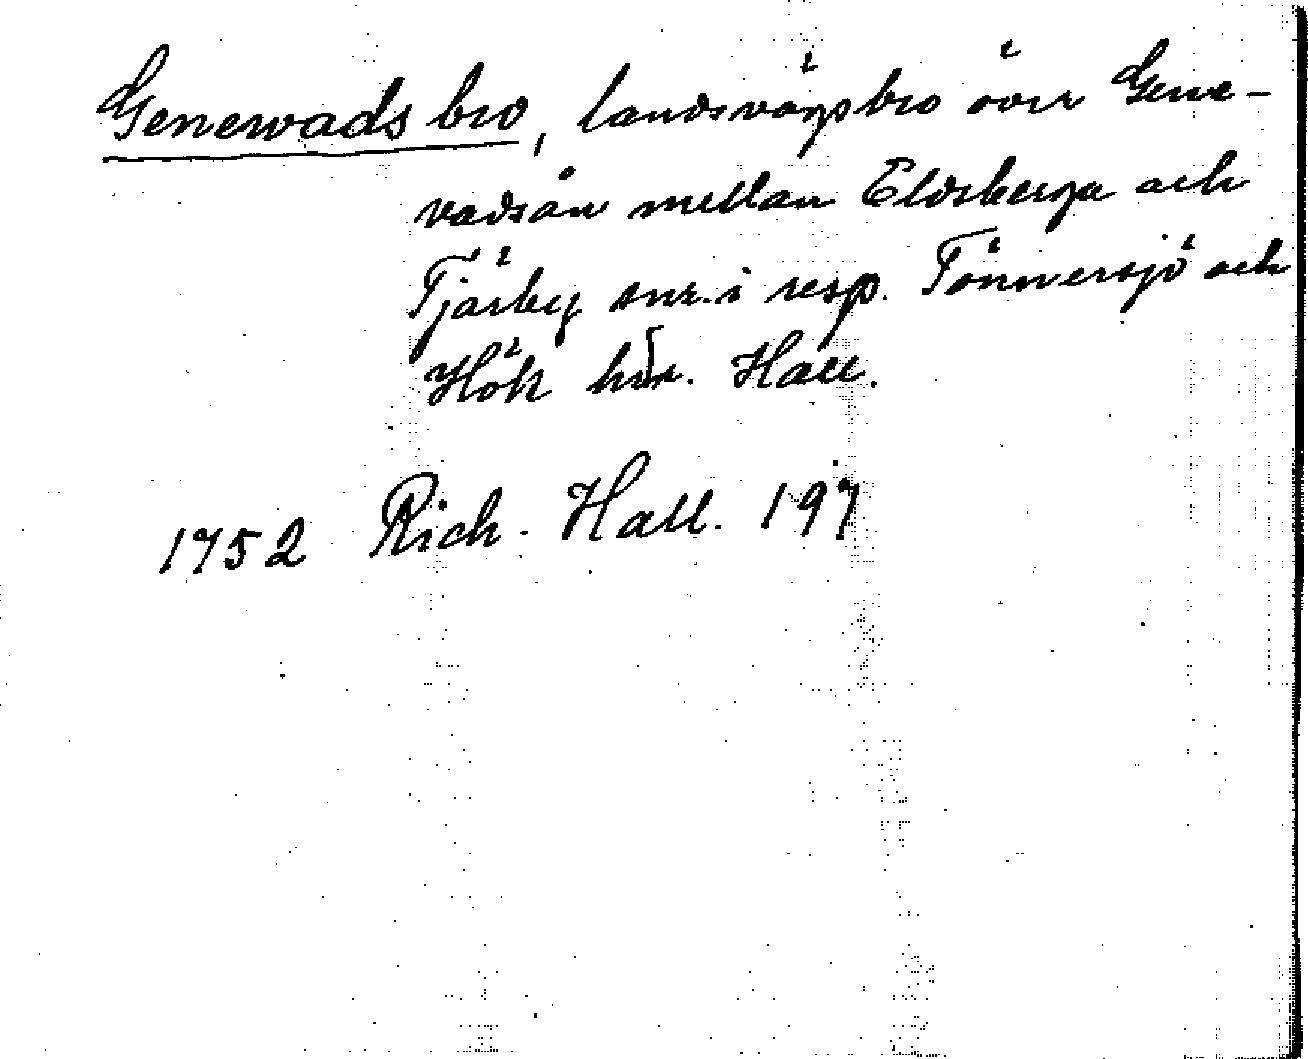 Genewads bro, landsvägsbro över Gene-
vadsån mellan Eldsberga och
Tjärby snr. i resp. Tönnersjö och
Hök hdr. Hall.
1752 Rich. Hall. 197